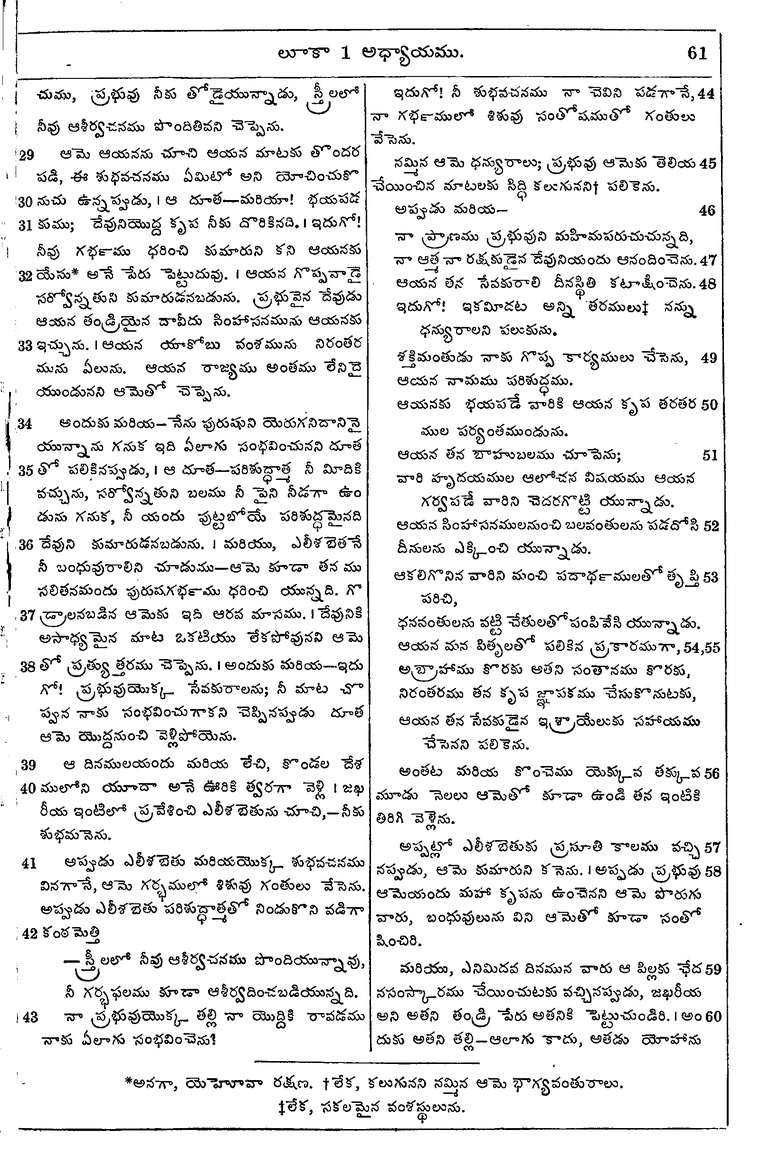 లూకా 1 అధ్యాయము.
61
చుము, ప్రభువు నీకు తోడైయున్నాడు, స్త్రీలలో
నీవు ఆశీర్వచనము పొందితివని చెప్పెను.
29 ఆమె ఆయనను చూచి ఆయన మాటకు తొందర
పడి, ఈ శుభవచనము ఏమిటో అని యోచించుకొ
30 నుచు ఉన్నప్పుడు, । ఆ దూత—మరియా! భయపడ
31 కుము; దేవునియొద్ద కృప నీకు దొరికినది. । ఇదుగో!
నీవు గర్భము ధరించి కుమారుని కని ఆయనకు
32 యేసు* అనే పేరు పెట్టుదువు. । ఆయన గొప్పవాడై
సర్వోన్నతుని కుమారుడనబడును. ప్రభువైన దేవుడు
ఆయన తండ్రియైన దావీదు సింహాసనమును ఆయనకు
33 ఇచ్చును. । ఆయన యాకోబు వంశమును నిరంతర
మును ఏలును. ఆయన రాజ్యము అంతము లేనిదై
యుండునని ఆమెతో చెప్పెను.
34 అందుకు మరియ—నేను పురుషుని యెరుగనిదానినై
యున్నాను గనుక ఇది ఏలాగు సంభవించునని దూత
35 తో పలికినప్పుడు, । ఆ దూత—పరిశుద్ధాత్మ నీ మీదికి
వచ్చును, సర్వోన్నతుని బలము నీ పైని నీడగా ఉం
డును గనుక, నీ యందు పుట్టబోయే పరిశుద్ధమైనది
36 దేవుని కుమారుడనబడును. । మరియు, ఎలీశబెతనే
నీ బంధువురాలిని చూడుము—ఆమె కూడా తన ము
సలితనమందు పురుషగర్భము ధరించి యున్నది. గొ
37 డ్రాలనబడిన ఆమెకు ఇది ఆరవ మాసము. । దేవునికి
అసాధ్యమైన మాట ఒకటియు లేకపోవునని ఆమె
38 తో ప్రత్యుత్తరము చెప్పెను. । అందుకు మరియ—ఇదు
గో! ప్రభువుయొక్క సేవకురాలను; నీ మాట చొ
ప్పున నాకు సంభవించుగాకని చెప్పినప్పుడు దూత
ఆమె యొద్దనుంచి వెళ్లిపోయెను.
39 ఆ దినములయందు మరియ లేచి, కొండల దేశ
40 ములోని యూదా అనే ఊరికి త్వరగా వెళ్లి । జఖ
రీయ ఇంటిలో ప్రవేశించి ఎలీశబెతును చూచి,—నీకు
శుభమనెను.
41 అప్పుడు ఎలీశబెతు మరియయొక్క శుభవచనము
వినగానే, ఆమె గర్భములో శిశువు గంతులు వేసెను.
అప్పుడు ఎలీశబెతు పరిశుద్ధాత్మతో నిండుకొని వడిగా
42 కంఠమెత్తి
—స్త్రీలలో నీవు ఆశీర్వచనము పొందియున్నావు,
నీ గర్భఫలము కూడా ఆశీర్వదించబడియున్నది.
43 నా ప్రభువుయొక్క తల్లి నా యొద్దికి రావడము
నాకు ఏలాగు సంభవించెను?
ఇదుగో! నీ శుభవచనము నా చెవిని పడగానే, 44
నా గర్భములో శిశువు సంతోషముతో గంతులు
వేసెను.
నమ్మిన ఆమె ధన్యురాలు; ప్రభువు ఆమెకు తెలియ 45
చేయించిన మాటలకు సిద్ధి కలుగునని† పలికెను.
అప్పుడు మరియ— 46
నా ప్రాణము ప్రభువుని మహిమపరుచుచున్నది,
నా ఆత్మ నా రక్షకుడైన దేవునియందు ఆనందించెను. 47
ఆయన తన సేవకురాలి దీనస్థితి కటాక్షించెను. 48
ఇదుగో! ఇకమీదట అన్ని తరములు‡ నన్ను
ధన్యురాలని పలుకును.
శక్తిమంతుడు నాకు గొప్ప కార్యములు చేసెను, 49
ఆయన నామము పరిశుద్ధము.
ఆయనకు భయపడే వారికి ఆయన కృప తరతర 50
ముల పర్యంతముండును.
ఆయన తన బాహుబలము చూపెను; 51
వారి హృదయముల ఆలోచన విషయము ఆయన
గర్వపడే వారిని చెదరగొట్టి యున్నాడు.
ఆయన సింహాసనములనుంచి బలవంతులను పడదోసి 52
దీనులను ఎక్కించి యున్నాడు.
ఆకలిగొనిన వారిని మంచి పదార్థములతో తృప్తి 53
పరిచి,
ధనవంతులను వట్టి చేతులతో పంపివేసి యున్నాడు.
ఆయన మన పితృలతో పలికిన ప్రకారముగా, 54,55
అబ్రాహాము కొరకు అతని సంతానము కొరకు,
నిరంతరము తన కృప జ్ఞాపకము చేసుకొనుటకు,
ఆయన తన సేవకుడైన ఇశ్రాయేలుకు సహాయము
చేసెనని పలికెను.
అంతట మరియ కొంచెము యెక్కువ తక్కువ 56
మూడు నెలలు ఆమెతో కూడా ఉండి తన ఇంటికి
తిరిగి వెళ్లెను.
అప్పట్లో ఎలీశబెతుకు ప్రసూతి కాలము వచ్చి 57
నప్పుడు, ఆమె కుమారుని కనెను. । అప్పుడు ప్రభువు 58
ఆమెయందు మహా కృపను ఉంచెనని ఆమె పొరుగు
వారు, బంధువులును విని ఆమెతో కూడా సంతో
షించిరి.
మరియు, ఎనిమిదవ దినమున వారు ఆ పిల్లకు ఛేద 59
నసంస్కారము చేయించుటకు వచ్చినప్పుడు, జఖరీయ
అని అతని తండ్రి పేరు అతనికి పెట్టుచుండిరి. । అం 60
దుకు అతని తల్లి—ఆలాగు కాదు, అతడు యోహాను
*అనగా, యెహోవా రక్షణ. †లేక, కలుగునని నమ్మిన ఆమె భాగ్యవంతురాలు.
‡లేక, సకలమైన వంశస్థులును.